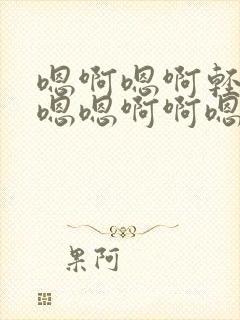 嗯啊嗯啊轻
嗯嗯啊啊嗯
果阿